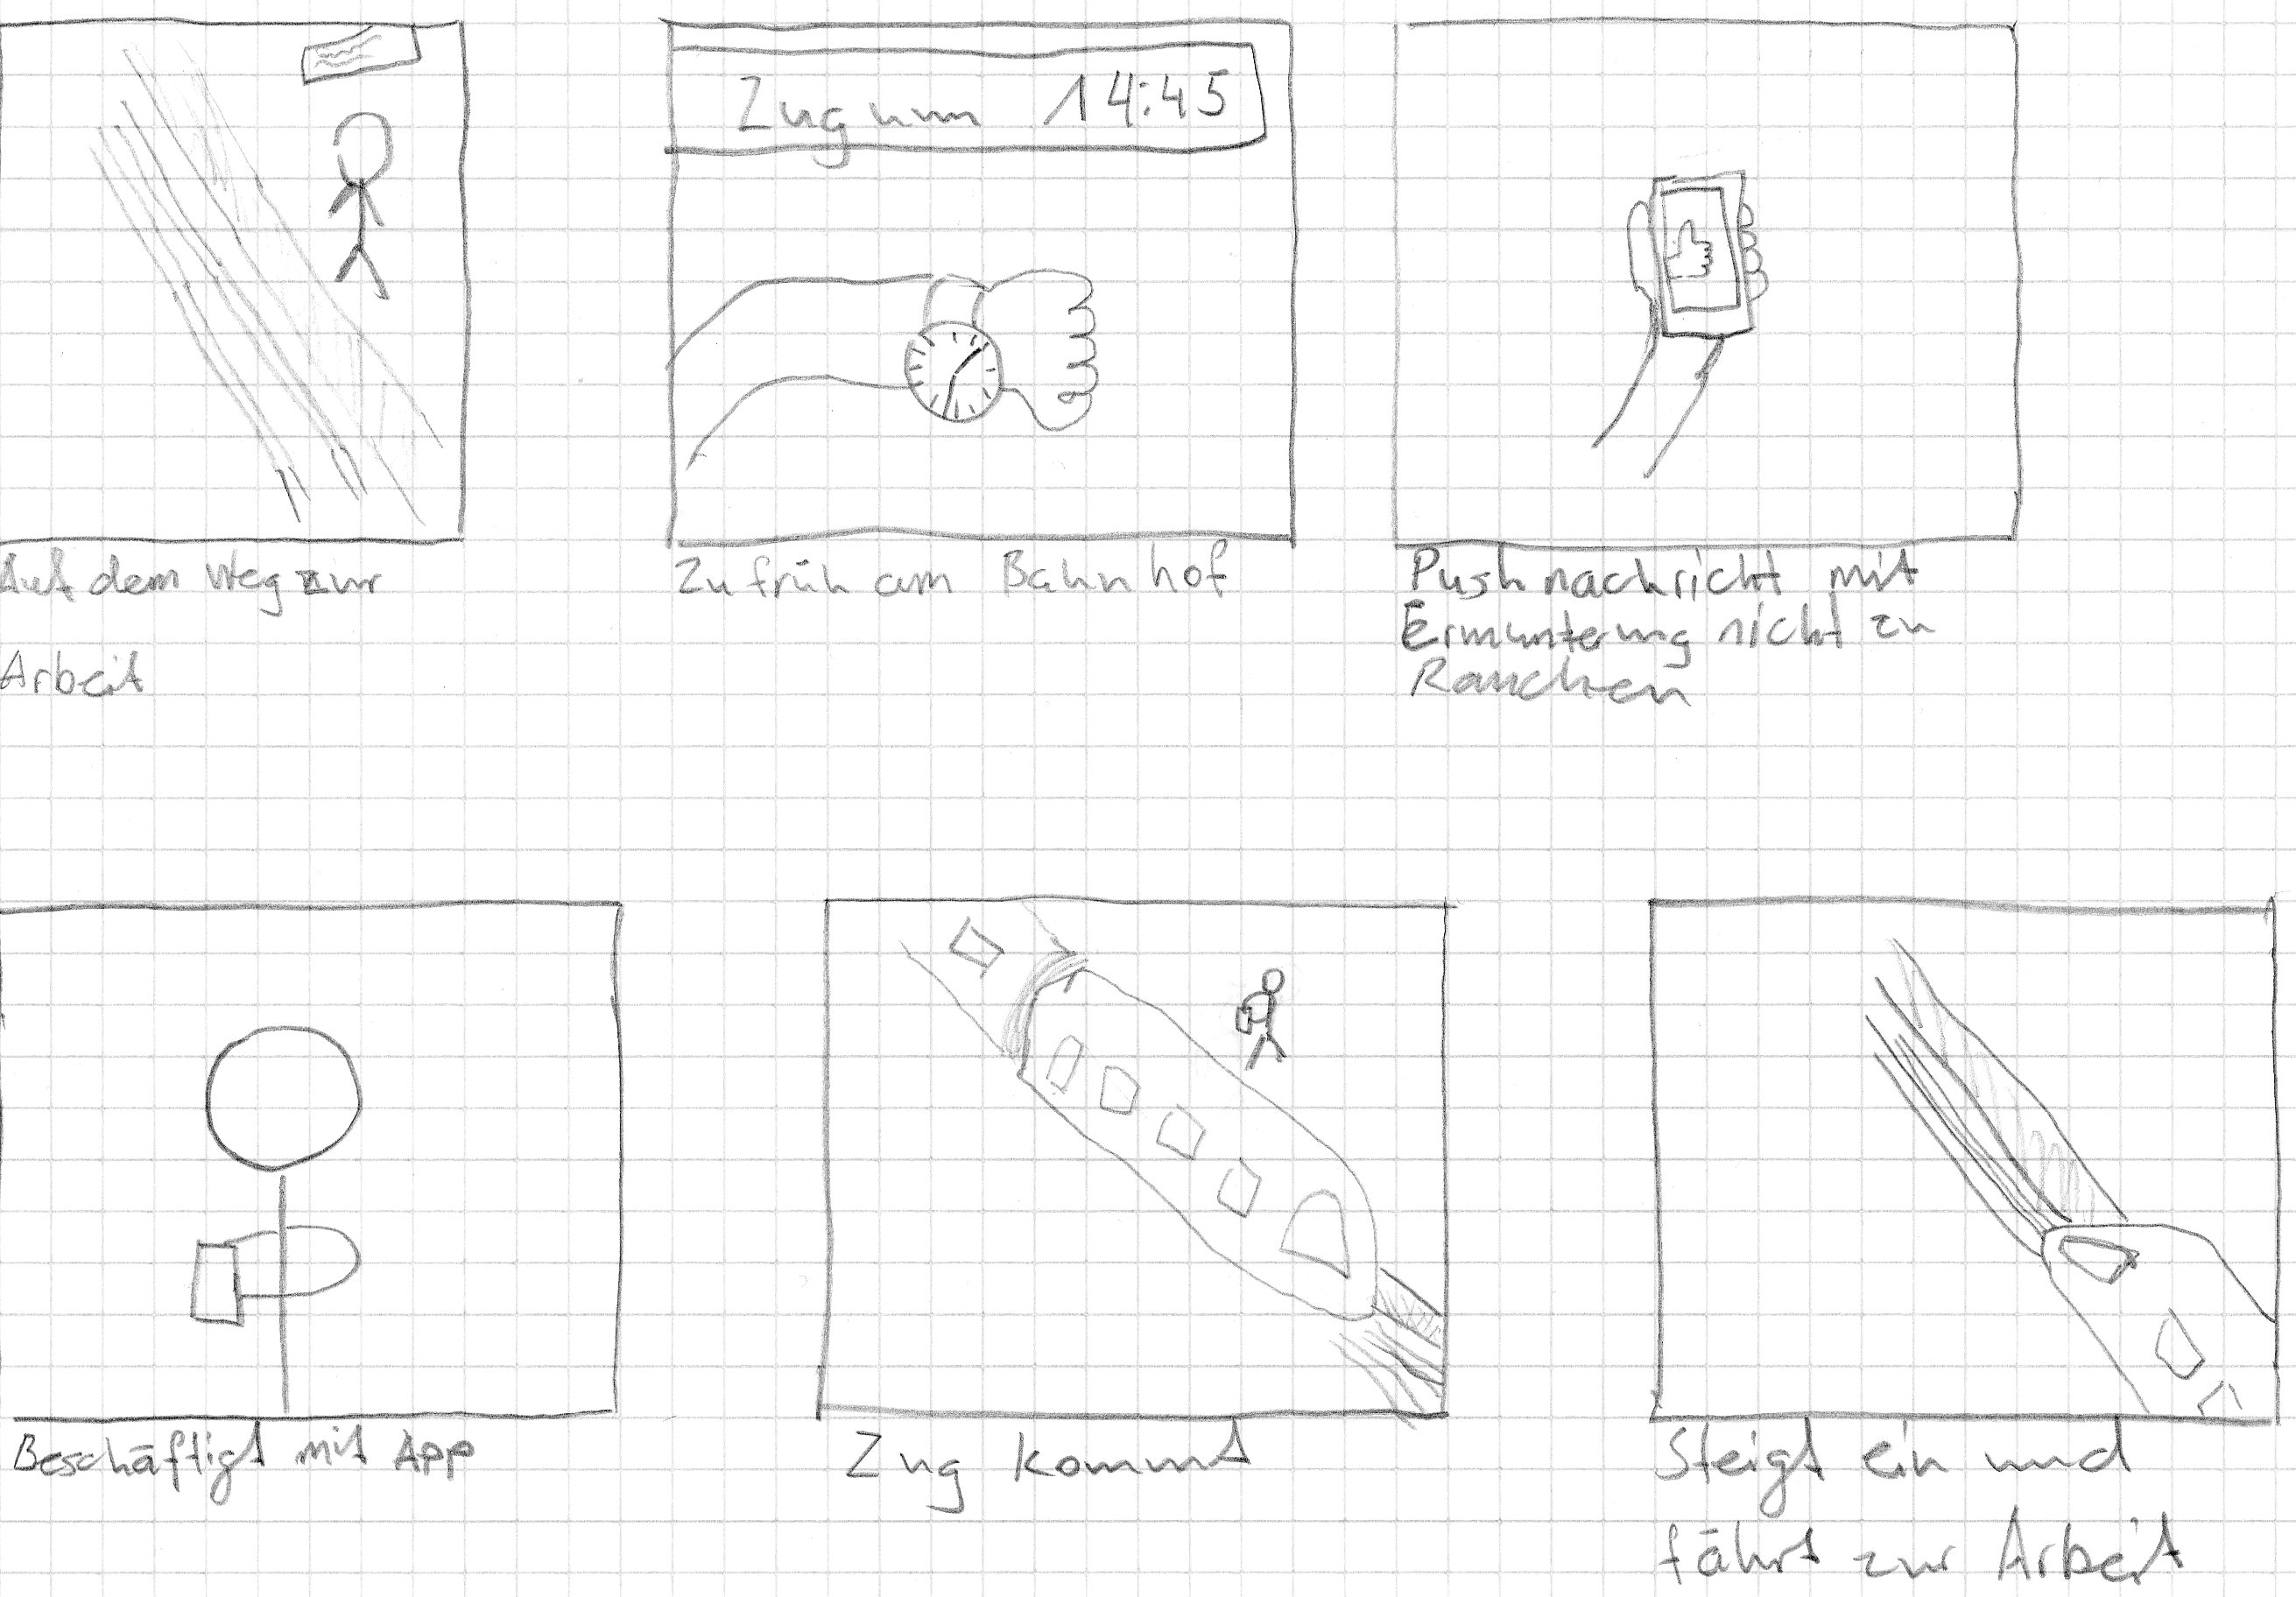 Zug um 14:45
Auf dem Weg zur
Arbeit
Zu früh am Bahnhof
Pushnachricht mit
Ermunterung nicht zu
Rauchen
Beschäftigt mit App
Zug kommt
Steigt ein und
fährt zur Arbeit